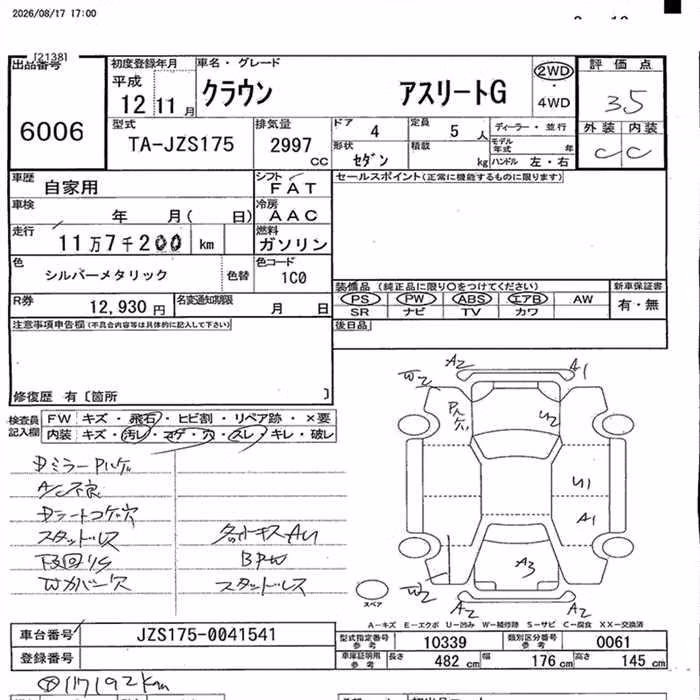 2026/08/17 17:00
[2138]
出品番号
6006
初度登録年月
平成
12年 11月
車名・グレード
クラウン アスリートG
2WD
・
4WD
評価点
3.5
外装 内装
C C
型式
TA-JZS175
排気量
2997 CC
ドア 4
定員 5 人
ディーラー・並行
形状 セダン
積載 kg
モデル年式 年
ハンドル 左・右
車歴
自家用
シフト
FAT
セールスポイント(正常に機能するものに限ります)
車検
年 月( 日)
冷房
AAC
走行
11万7千200 km
燃料
ガソリン
色
シルバーメタリック
色替
色コード
1C0
装備品(純正品に限り○をつけてください)
新車保証書
PS PW ABS エアB AW
有・無
SR ナビ TV カワ
R券
12,930 円
名変通知期限
月 日
後日品
注意事項申告欄(不具合内容等は具体的に記入して下さい)
修復歴 有〔箇所 〕
検査員
記入欄
FW キズ・飛石・ヒビ割・リペア跡・×要
内装 キズ・汚レ・コゲ・穴・スレ・キレ・破レ
Dミラーハゲ
A/C不良
Dシートコゲ穴
スタッドレス
下回りサ
Wカバー欠
各所キズAU
スタッドレス
A2
A1
W2
U2
U1
A1
A3
W2
A2
A2
スペア
A-キズ E-エクボ U-凹み W-補修跡 S-サビ C-腐食 XX-交換済
車台番号
JZS175-0041541
型式指定番号
参考
10339
類別区分番号
参考
0061
登録番号
車庫証明用
参考
長さ 482 cm
幅 176 cm
高さ 145 cm
117192km